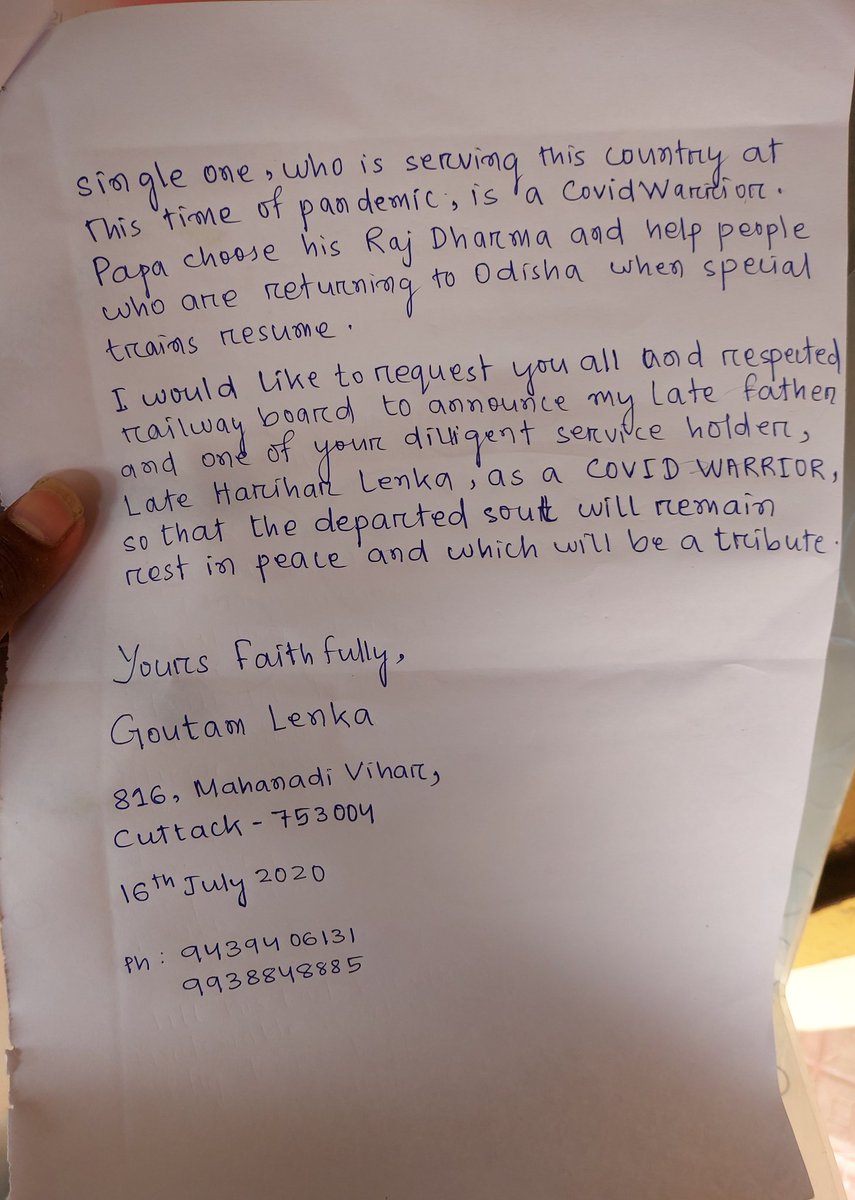 single one, who is serving this country at
this time of pandemic, is a Covid Warrior.
Papa choose his Raj Dharma and help people
who are returning to Odisha when special
trains resume.
I would like to request you all and respected
railway board to announce my late father
and one of your dilligent service holder,
Late Harihar Lenka, as a COVID WARRIOR,
so that the departed soul will remain
rest in peace and which will be a tribute.
Yours Faithfully,
Goutam Lenka
816, Mahanadi Vihar,
Cuttack - 753004
16th July 2020
Ph : 94394 06131
9938848885